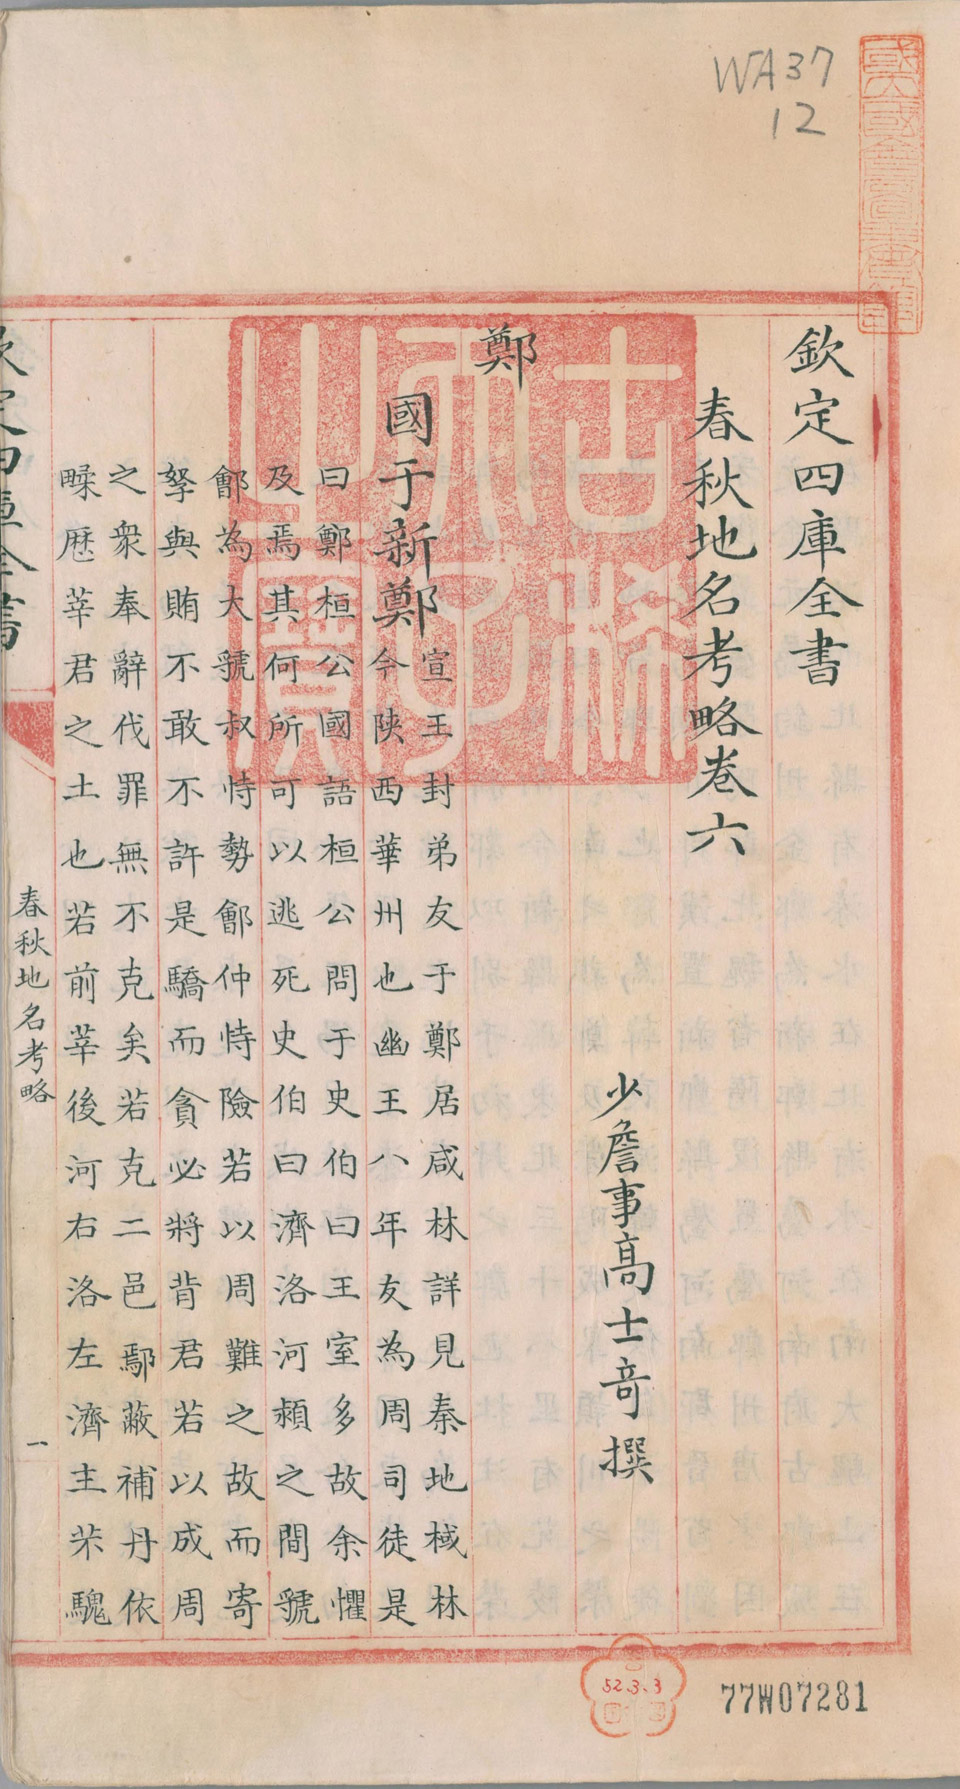 WA37
12
國立國會圖書館藏書
古稀天子之寶
欽定四庫全書
春秋地名考略卷六
少詹事高士奇撰
鄭
國于新鄭
宣王封弟友于鄭居咸林詳見秦地棫林
今陝西華州也幽王八年友為周司徒是
曰鄭桓公國語桓公問于史伯曰王室多故余懼
及焉其何所可以逃死史伯曰濟洛河潁之間虢
鄶為大虢叔恃勢鄶仲恃險若以周難之故而寄
孥與賄不敢不許是驕而貪必將背君若以成周
之衆奉辭伐罪無不克矣若克二邑鄢蔽補丹依
㽥歷莘君之土也若前莘後河右洛左濟主芣騩
欽定四庫全書
春秋地名考略
一
52.3.3
77W07281